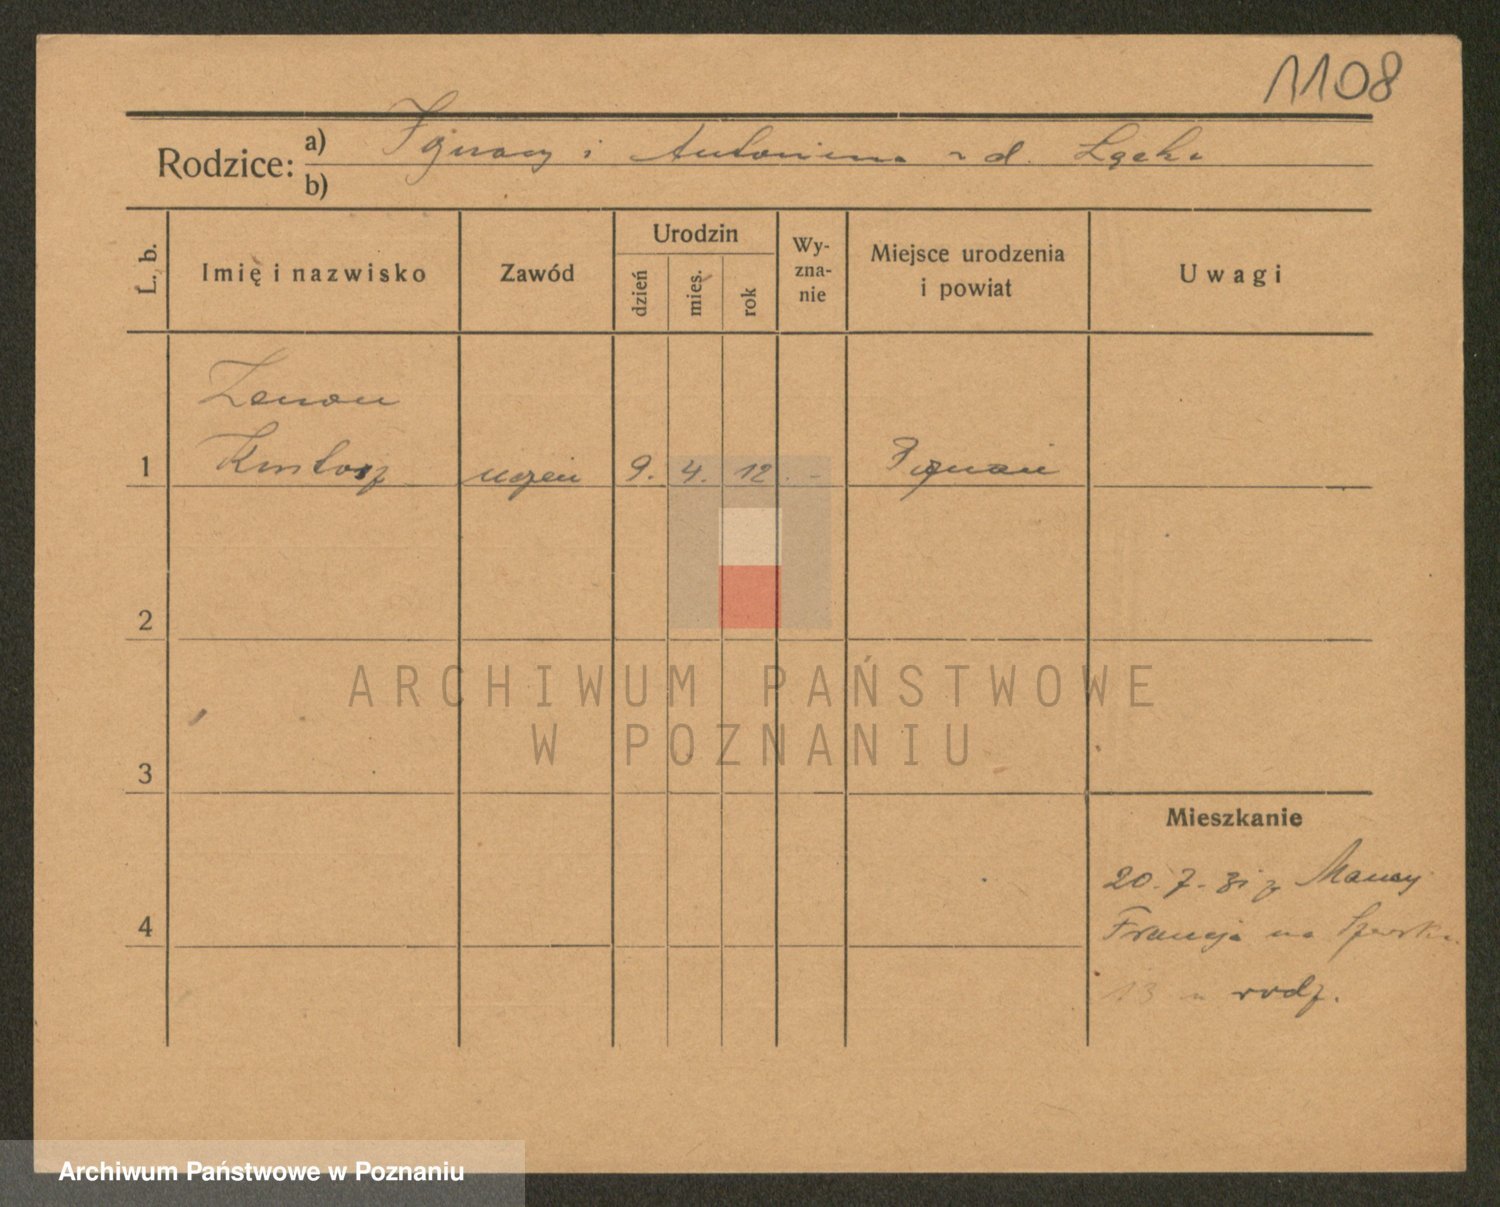 1108
Rodzice:
a) Ignacy i Antonina z d. Łącka
b)
L. b.
Imię i nazwisko
Zawód
Urodzin
dzień
mies.
rok
Wy-
zna-
nie
Miejsce urodzenia
i powiat
Uwagi
Zenon
1 uczeń 9. 4. 12 . - Poznań
2
3
4
Mieszkanie
20. 7. 31 z
Francja na
13 u rodz.
ARCHIWUM PAŃSTWOWE
W POZNANIU
Archiwum Państwowe w Poznaniu